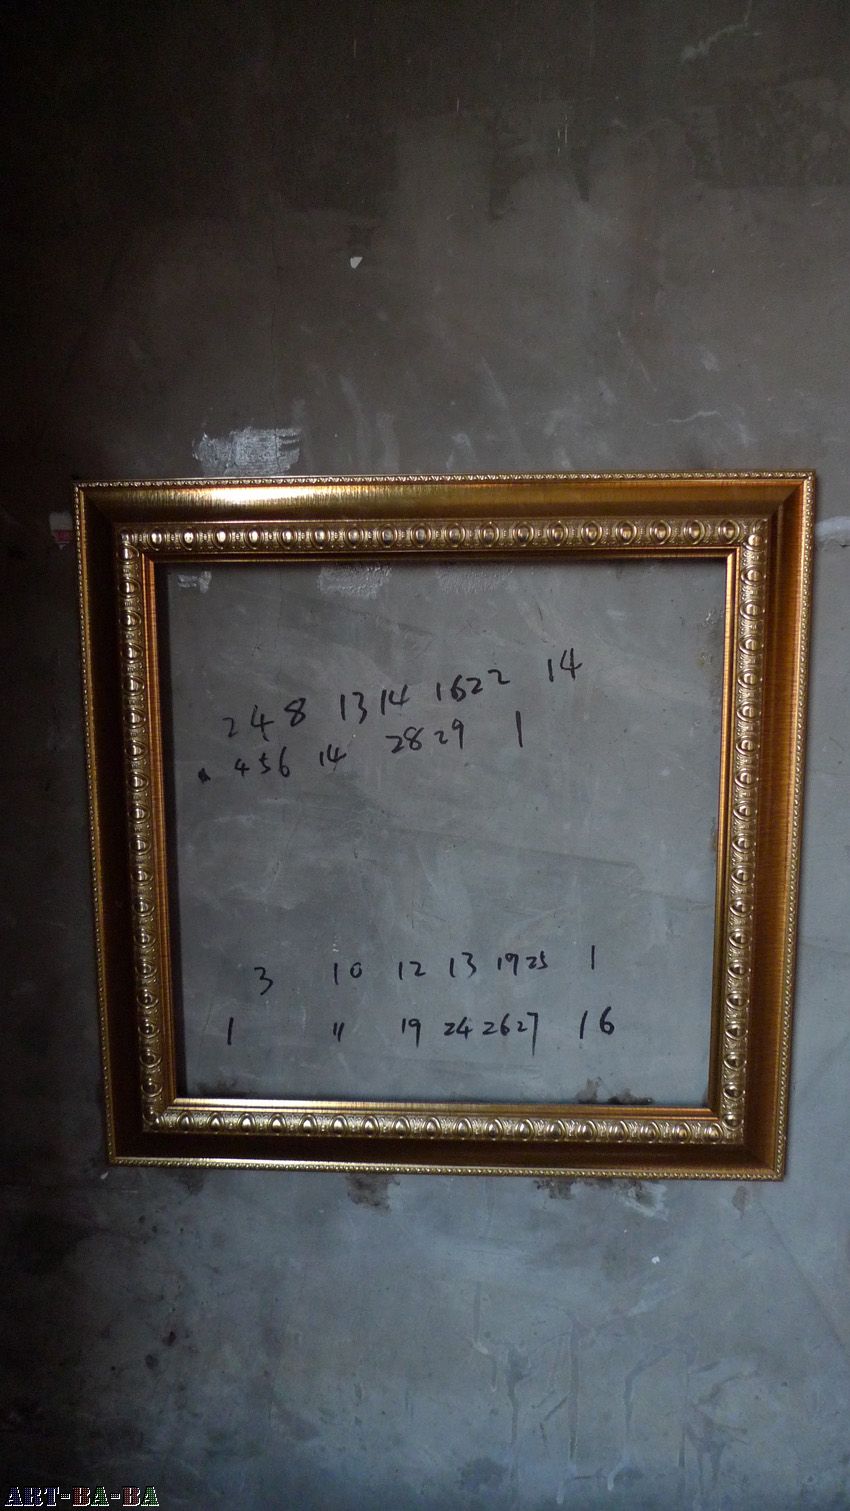 2 4 8 13 14 16 22 14
4 5 6 14 28 29 1
3 10 12 13 19 25 1
1 11 19 24 26 27 16
ART-BA-BA